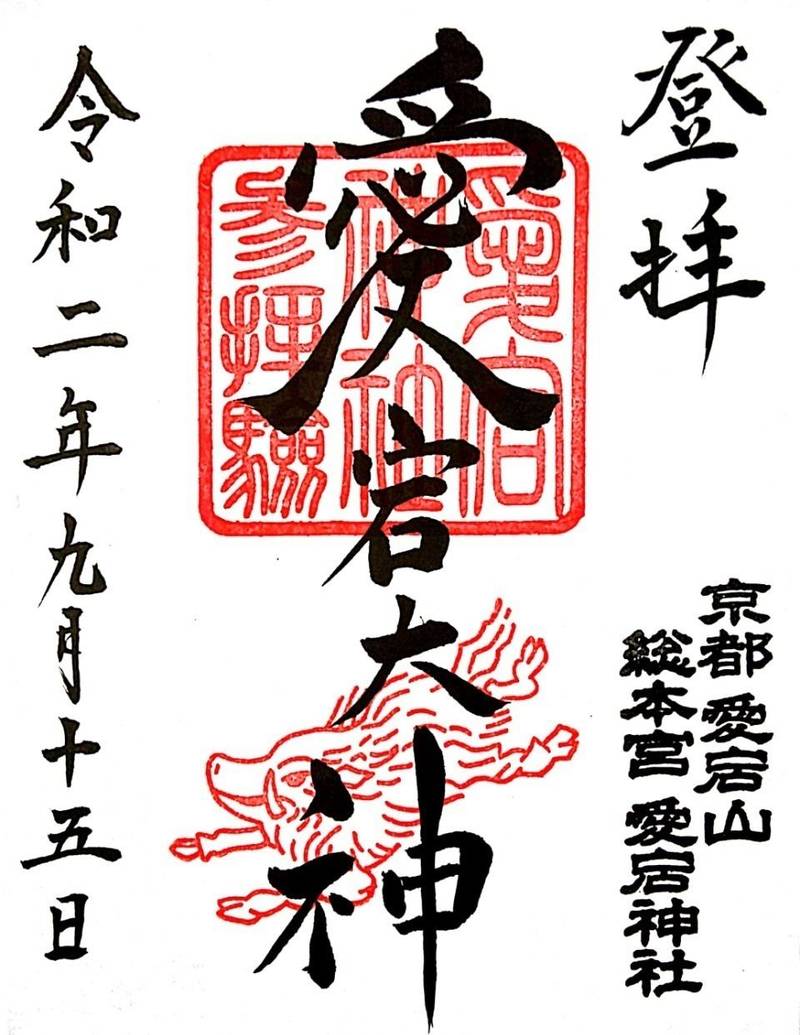 登拝
京都愛宕山
総本宮 愛宕神社
愛宕大神
愛宕
神社
参拝験
令和二年九月十五日